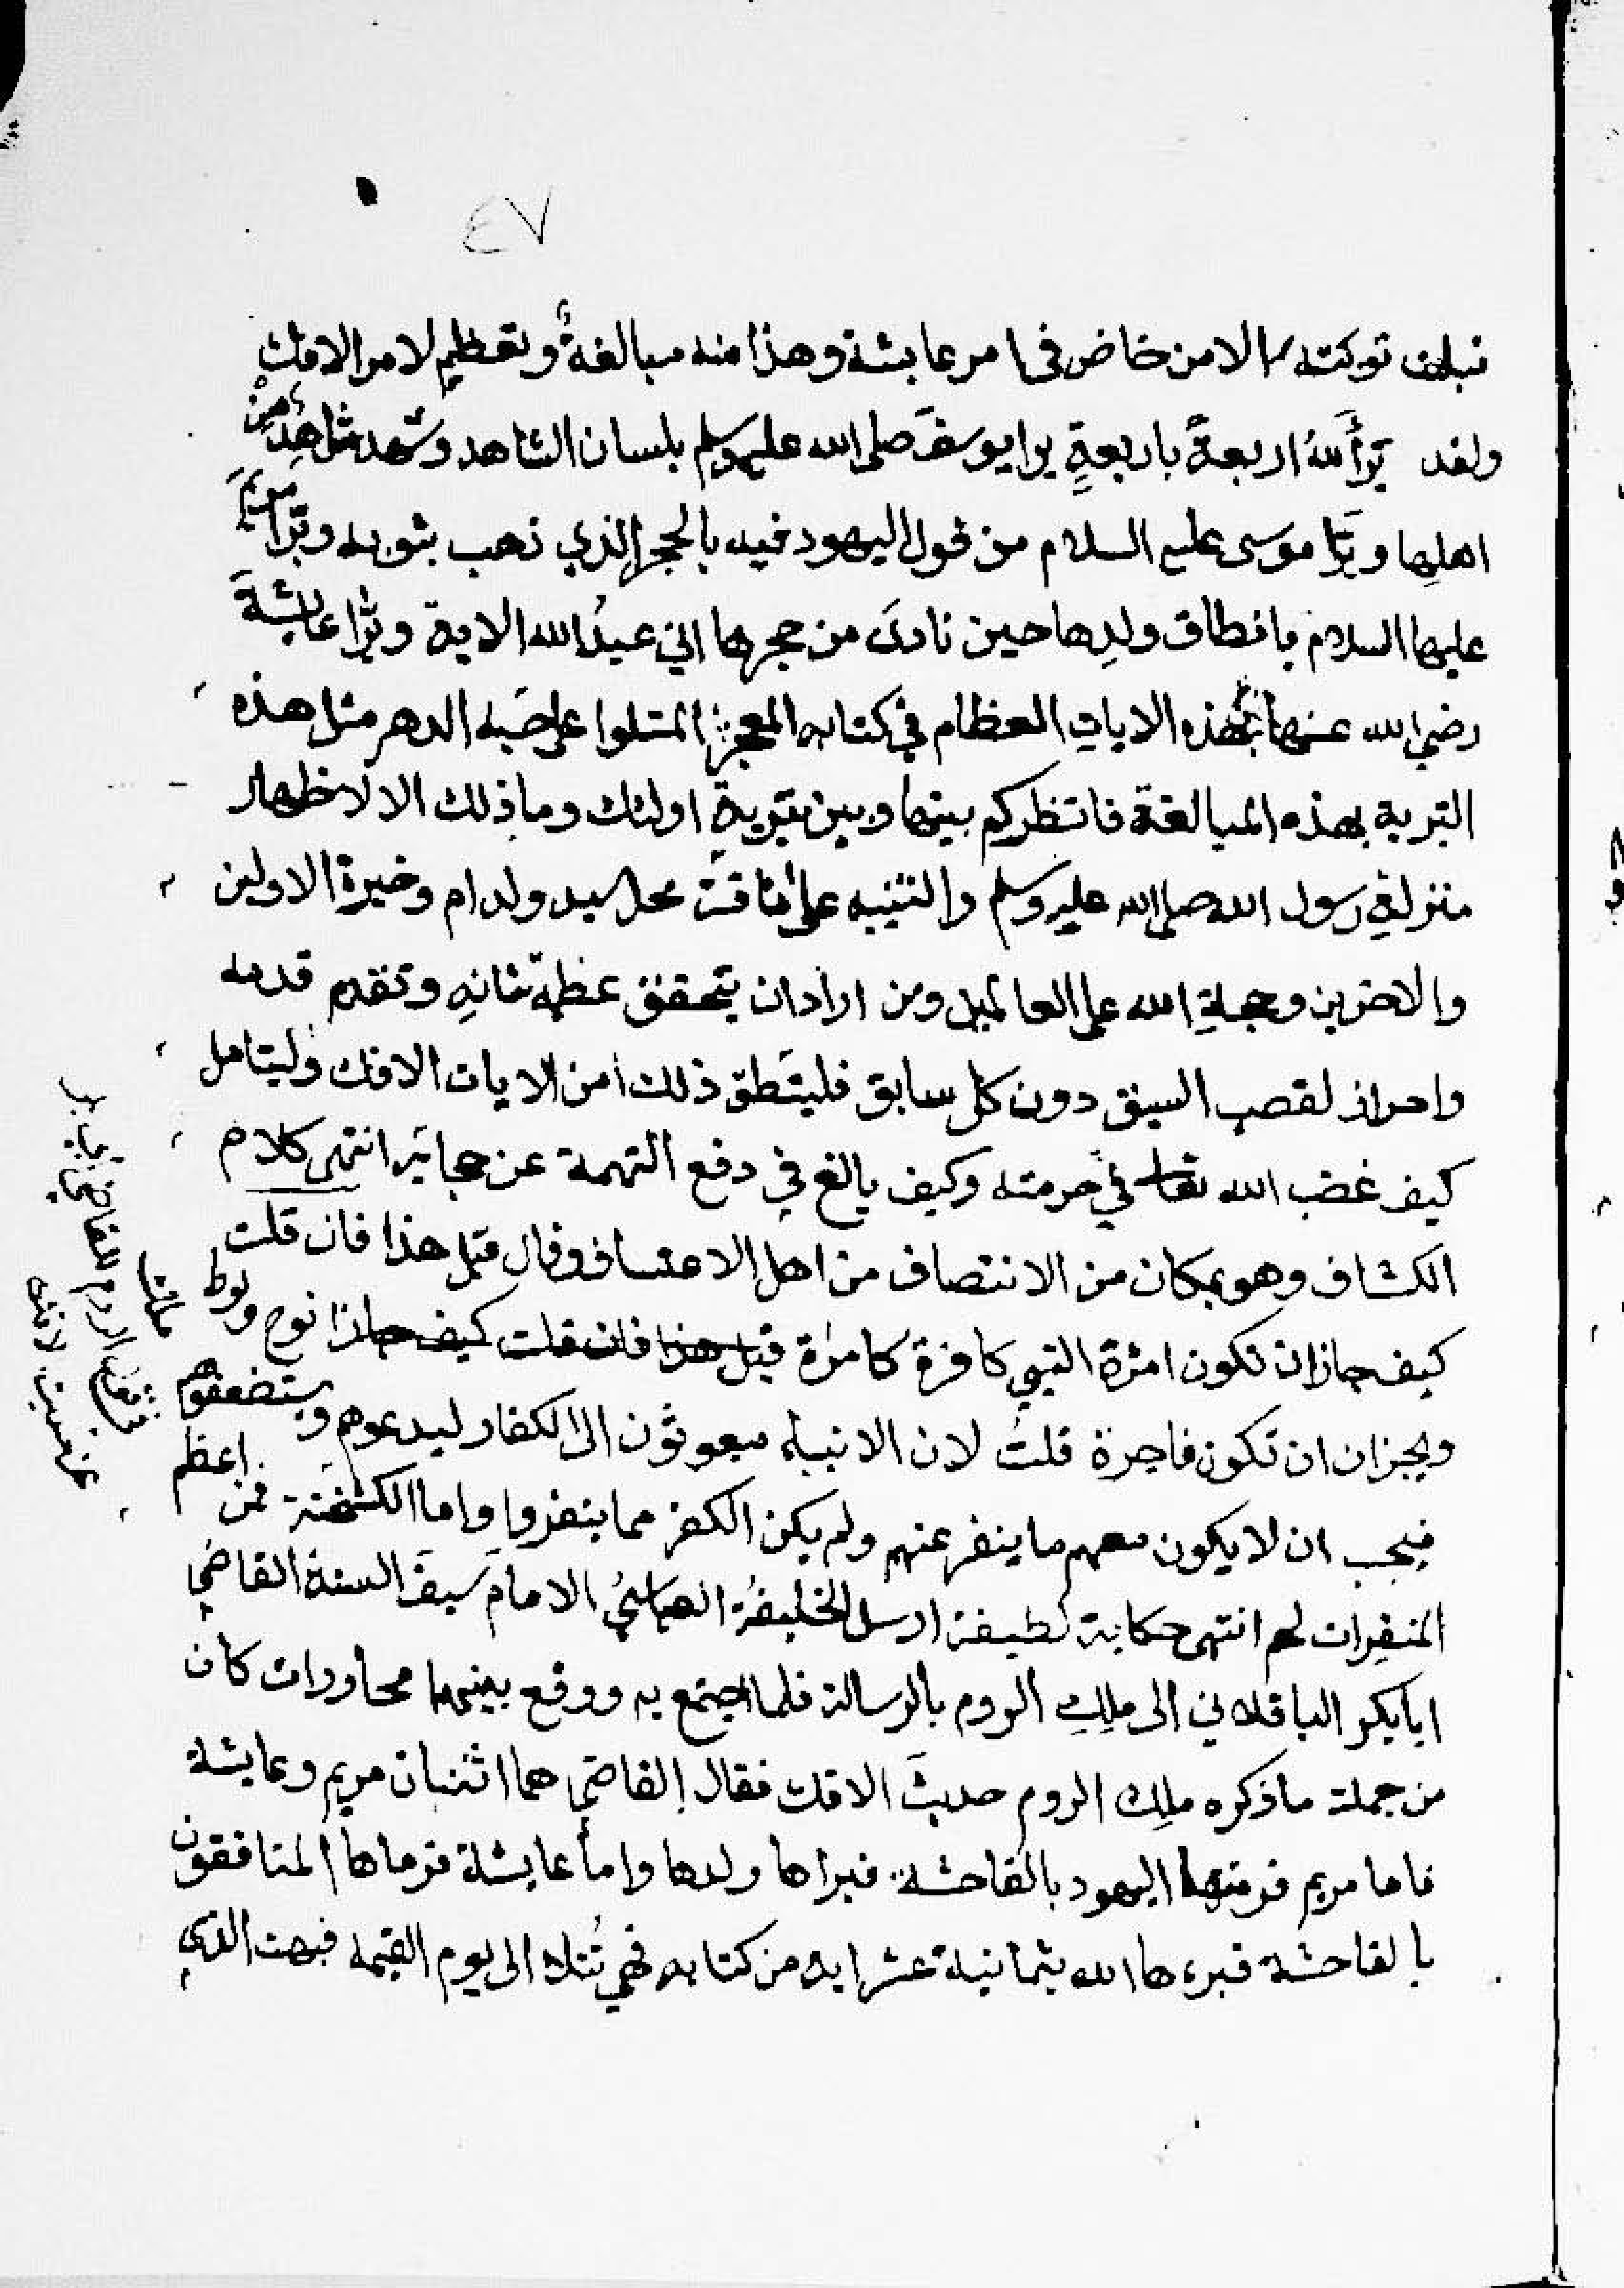 ٤٧
قبلت توبته الا من خاض في امر عايشة وهذا منه مبالغةٌ وتعظيم لامر الافك
ولقد برَّأ الله اربعةً باربعةٍ برا يوسفَ صلى الله عليه وسلم بلسان الشاهد وشهد شاهدٌ مِنْ
اهلِها وبرَّا موسى عليه السلام من قول اليهود فيه بالحجر الذي ذهب بثوبه وبرَّا مريمَ
عليها السلام بانطاق ولدِها حين نادىَ من حجرها اني عبدُ الله الاية وبرَّا عائشةَ
رضي الله عنها بهذه الاياتِ العظام في كتابه المعجز المتلوا على الدهر مثل هذه
التبرية بهذه المبالغة فانظركم بينها وبين تبريةِ اولئك وما ذلك الا لاظهار
منزلةِ رسول الله صلى الله عليه وسلم والتنبيه على محل سيد ولد ادم وخيرة الاولين
والاخرين وحجةِ الله على العالمين ومن اراد ان يتحقق عظمة شانِه وتقدم قدمه
واحراز لقصب السبق دون كل سابق فليتَطق ذلك من الايات الافك وليتامل
كيف غضب الله تعالى في حرمته وكيف بالغ في دفع التهمة عن حجابه انتهى كلام
الكشاف وهو بمكان من الانتصاف من اهل الاعتساف وقال قبل هذا فان قلت
كيف جاز ان تكون امرٔة النبي كافرة كامراة قبل هذا فان قلت كيف جاز انوح ولوط
ويجزان ان تكون فاجرة قلتُ لان الانبياء مبعوثون الى الكفار ليدعوهم ويستضعفوهم
فيجب ان لا يكون معهم ما ينفر عنهم ولم يكن الكفر مما ينفروا واما الكشخنة فمن اعظم
المنفِرات لهم انتهى حكاية لطيفة ارسل الخليفةُ العباسيُ الامامَ سيفَ السنة القاضي
ابابكر الباقلاني الى ملكِ الروم بالرسالة فلما اجتمع به ووقع بينهما محاورات كان
من جملة ما ذكره ملِك الروم حديثَ الافك فقال القاضي هما اثنتان مريم وعايشة
فاما مريم فرمتها اليهود بالفاحشة فبراها ولدها واما عايشة فرماها المنافقون
بالفاحشة فبرءها الله بثمانية عشر ايه من كتابه فهي تُتلا الى يوم القيمه فبهت الذي
الروم للقاضي ابي بكر